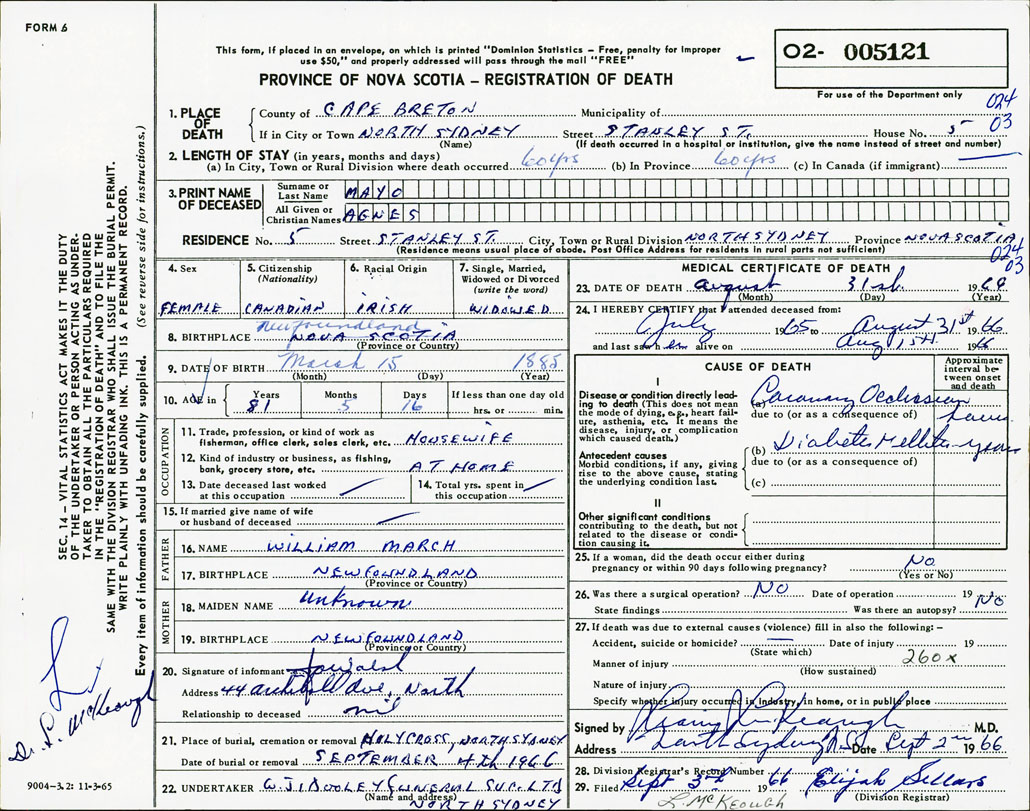 FORM 6
This form, if placed in an envelope, on which is printed "Dominion Statistics – Free, penalty for improper
use $50," and properly addressed will pass through the mail "FREE"
PROVINCE OF NOVA SCOTIA – REGISTRATION OF DEATH
02- 005121
For use of the Department only
024
03
1. PLACE OF DEATH
County of CAPE BRETON Municipality of
If in City or Town NORTH SYDNEY Street STANLEY ST. House No. 5
(Name) (If death occurred in a hospital or institution, give the name instead of street and number)
2. LENGTH OF STAY (in years, months and days)
(a) In City, Town or Rural Division where death occurred 60 yrs (b) In Province 60 yrs (c) In Canada (if immigrant)
3. PRINT NAME OF DECEASED
Surname or Last Name MAYO
All Given or Christian Names AGNES
RESIDENCE No. 5 Street STANLEY ST. City, Town or Rural Division NORTH SYDNEY Province NOVA SCOTIA
(Residence means usual place of abode. Post Office Address for residents in rural parts not sufficient)
024
03
4. Sex
FEMALE
5. Citizenship
(Nationality)
CANADIAN
6. Racial Origin
IRISH
7. Single, Married,
Widowed or Divorced
(write the word)
WIDOWED
Newfoundland
8. BIRTHPLACE NOVA SCOTIA
(Province or Country)
9. DATE OF BIRTH March 15 1885
(Month) (Day) (Year)
10. AGE in
Years Months Days If less than one day old
81 5 16 hrs. or min.
OCCUPATION
11. Trade, profession, or kind of work as
fisherman, office clerk, sales clerk, etc. HOUSEWIFE
12. Kind of industry or business, as fishing,
bank, grocery store, etc. AT HOME
13. Date deceased last worked
at this occupation
14. Total yrs. spent in
this occupation
15. If married give name of wife
or husband of deceased
FATHER
16. NAME WILLIAM MARCH
17. BIRTHPLACE NEWFOUNDLAND
(Province or Country)
MOTHER
18. MAIDEN NAME Unknown
19. BIRTHPLACE NEWFOUNDLAND
(Province or Country)
20. Signature of informant
Address 44 Ave, North
Relationship to deceased nil
21. Place of burial, cremation or removal HOLYCROSS, NORTH SYDNEY
Date of burial or removal SEPTEMBER 4th 1966
22. UNDERTAKER W.J. DOOLEY FUNERAL SUP. LTD
(Name and address) NORTH SYDNEY
MEDICAL CERTIFICATE OF DEATH
23. DATE OF DEATH August 31st 1966
(Month) (Day) (Year)
24. I HEREBY CERTIFY that I attended deceased from:
July 1965 to August 31st 1966
and last saw h er alive on Aug 15th 1966
CAUSE OF DEATH
Approximate
interval be-
tween onset
and death
I
Disease or condition directly lead-
ing to death (This does not mean
the mode of dying, e.g., heart fail-
ure, asthenia, etc. It means the
disease, injury, or complication
which caused death.)
(a) Coronary Occlusion hours
due to (or as a consequence of)
Antecedent causes
Morbid conditions, if any, giving
rise to the above cause, stating
the underlying condition last.
(b) Diabetes Mellitus - years
due to (or as a consequence of)
(c)
II
Other significant conditions
contributing to the death, but not
related to the disease or condi-
tion causing it.
25. If a woman, did the death occur either during
pregnancy or within 90 days following pregnancy? NO
(Yes or No)
26. Was there a surgical operation? NO Date of operation 19
State findings Was there an autopsy? NO
27. If death was due to external causes (violence) fill in also the following: –
Accident, suicide or homicide? Date of injury 19
(State which)
Manner of injury 260x
(How sustained)
Nature of injury
Specify whether injury occurred in industry, in home, or in public place
Signed by McKeough M.D.
Address North Sydney N.S. Date Sept 2nd 1966
28. Division Registrar's Record Number
29. Filed Sept 3rd 1966 Elijah Sellars
(Division Registrar)
L. McKEOUGH
SEC. 14 – VITAL STATISTICS ACT MAKES IT THE DUTY
OF THE UNDERTAKER OR PERSON ACTING AS UNDER-
TAKER TO OBTAIN ALL THE PARTICULARS REQUIRED
IN THE "REGISTRATION OF DEATH" AND TO FILE THE
SAME WITH THE DIVISION REGISTRAR WHO SHALL ISSUE THE BURIAL PERMIT.
WRITE PLAINLY WITH UNFADING INK. THIS IS A PERMANENT RECORD.
Every item of information should be carefully supplied. (See reverse side for instructions.)
Dr. L. McKeough
9004-3.2: 11-3-65